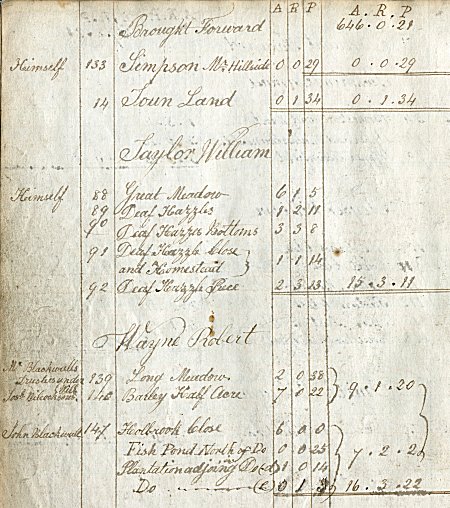 A R P A. R. P
Brought Forward 646.0.29
Himself 133 Simpson Mr Hillside 0 0 29 0.0.29
14 Town Land 0 1 34 0.1.34
Taylor William
Himself 88 Great Meadow 6 1 5
89 Deaf Hazzles 1 2 11
90 Deaf Hazzle Bottoms 3 3 8
91 Deaf Hazzle Close
and Homestead 1 1 14
92 Deaf Hazzle Piece 2 3 13 15.3.11
Wayne Robert
Mr Blackwalls
Trustees under
139 Long Meadow 2 0 38
146 Barley Half Acre 7 0 22 9.1.20
John Blackwall 147 Holbrook Close 6 0 0
Fish Pond North of Do 0 0 25
Plantation adjoing Do (d) 1 0 14 7.2.2
Do (e) 0 1 3 16.3.22